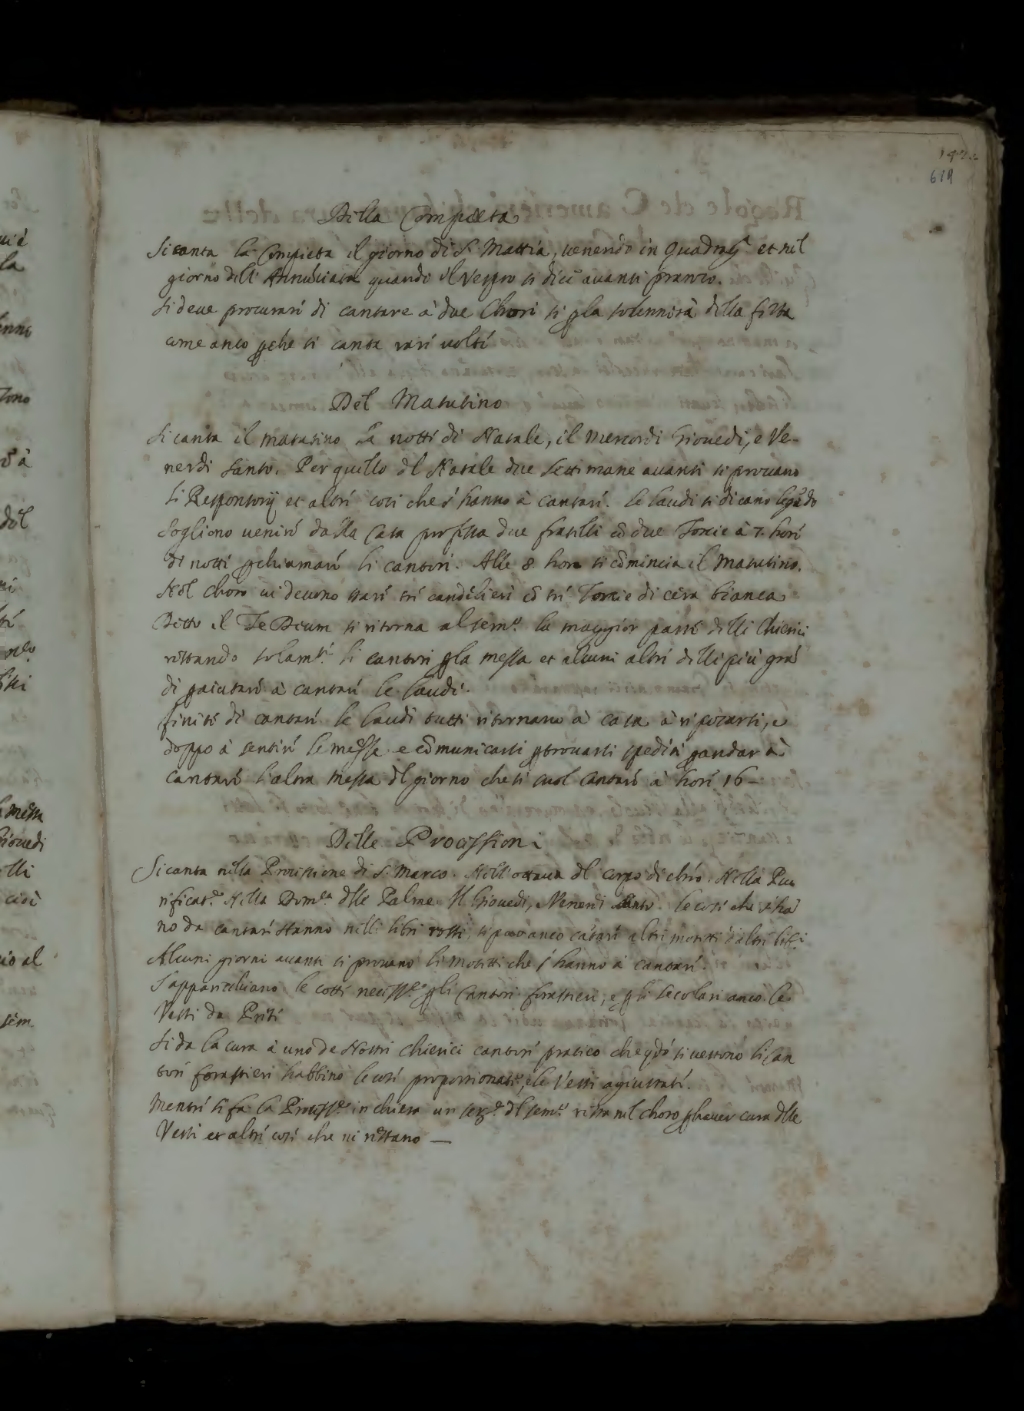 142
619
Della Compieta
Si canta la Compieta il giorno di S. Mattia, venendo in Quadrag.ᵉ et nel
giorno dell' Annunciata quando il Vespro si dice avanti pranzo.
Si deve procurare di cantare à due Chori si p la solennità della festa
come anco pche si canta rare volte
Del Matutino
Si canta il matutino la notte di Natale, il Mercordi Giovedi, e Ve-
nerdi Santo. Per quello del Natale due settimane avanti si provano
Li Responsorij et altre cose che s'hanno à cantare. Le laudi si dicano
Sogliono venire dalla Casa professa due fratelli cō due Torcie à 7. hore
di notte p chiamare li cantori. Alle 8 hore si comincia il Matutino.
Nel choro vi devono stare tre candelieri cō tre Torcie di cera bianca
Detto il Te Deum si ritorna al sem.º la maggior parte delli Chierici
restando solamᵗᵉ li cantori p la messa et alcuni altri delli più grā
di p aiutare à cantare le laudi.
finite di cantare le laudi tutti ritornano à casa à riposarsi, e
doppo à sentire le messe e cōmunicarsi p trovarsi spediti p andar à
cantare l'altra messa del giorno che si suol cantare à hore 16 —
Delle Processioni
Si canta nella Processione di S. Marco. Nell' ottava del Corpo di Chro. Nella Pu
rificat.ᵉ Nella Dom.ᶜᵃ delle Palme. Il Giovedi, e Venerdi Santo. Le cose che s'hā
no da cantare stanno nelli libri rossi, si possono anco cātare altri motetti
Alcuni giorni avanti si provano li motetti che s'hanno à cantare.
S'apparecchiano le cotte necess.ᵉ p gli Cantori forastieri, e p gli secolari anco le
Vesti da Preti
Si da la cura à uno de Nostri chierici cantore pratico che qdo si vestono li can
tori forastieri habbino le cose proporzionate, e le Vesti aggiustate.
Mentre si fa la Process.ᵉ in chiesa un del sem.º resta nel choro p haver cura delle
Vesti et altre cose che vi restano —